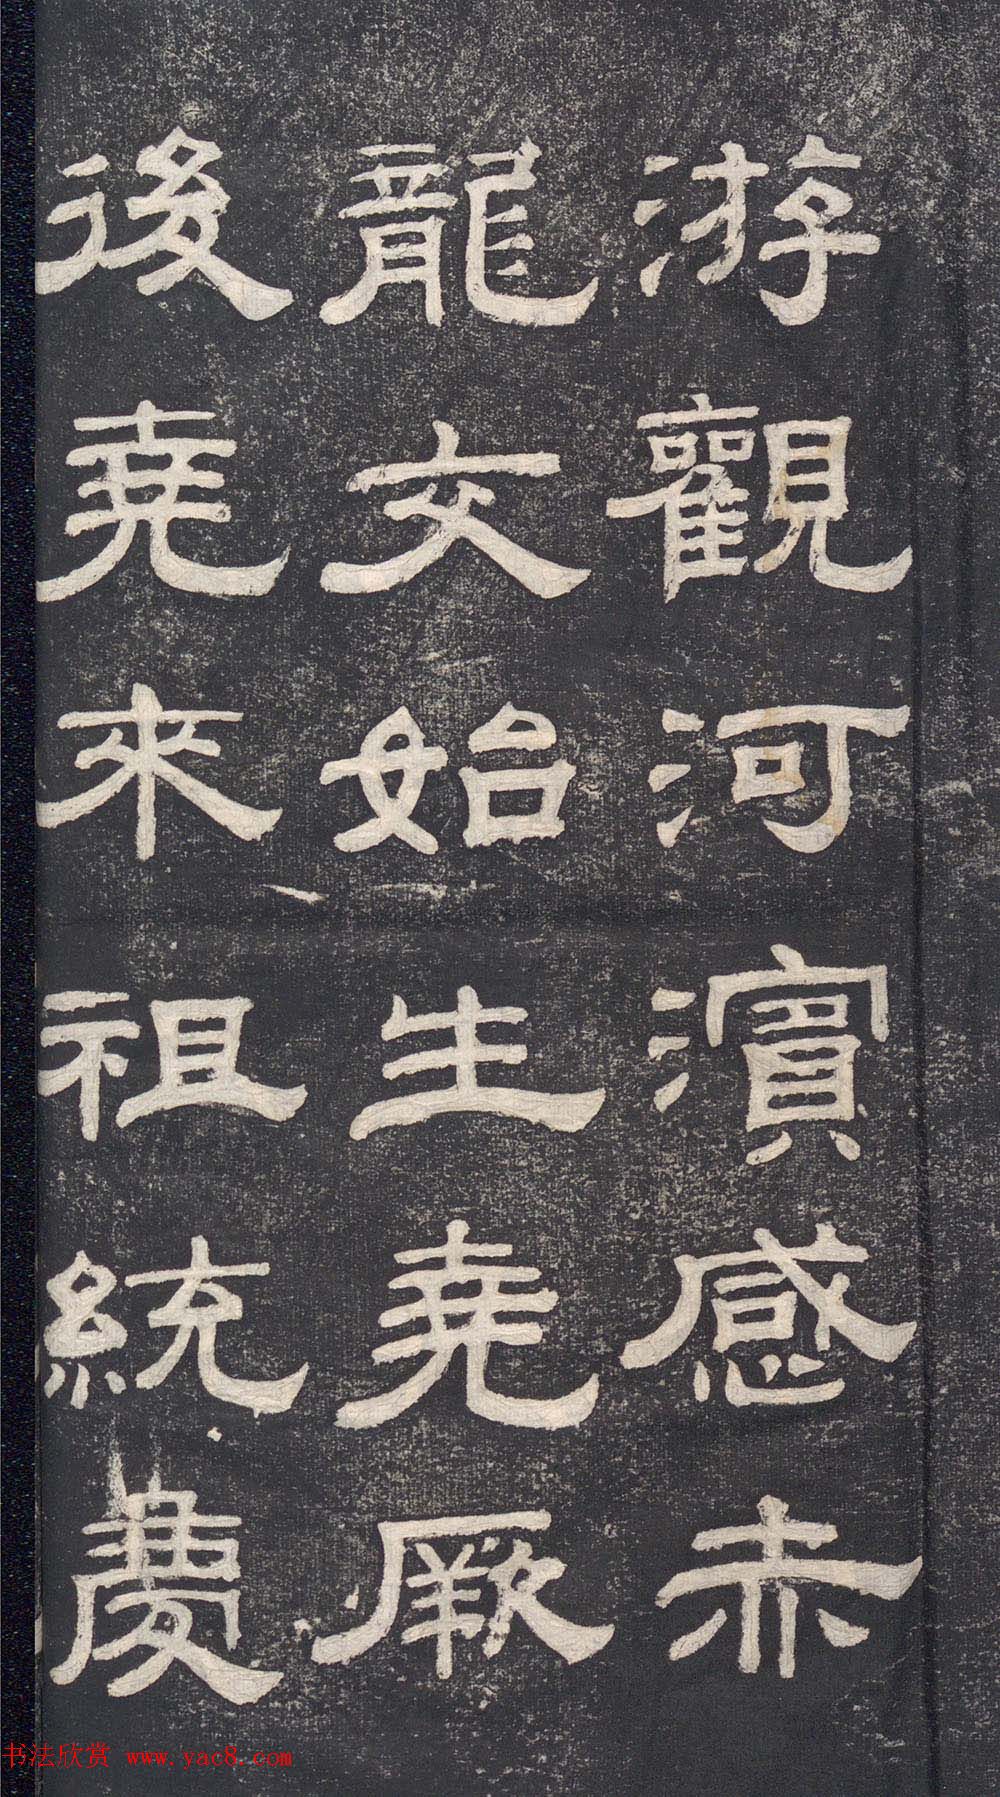 游觀河濱感赤
龍文始生堯厥
後堯来祖統慶
书法欣赏 www.yac8.com